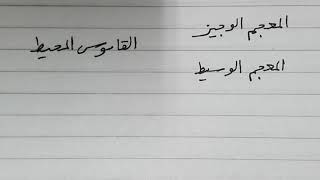 المعجم الوجيز
المعجم الوسيط
القاموس المحيط